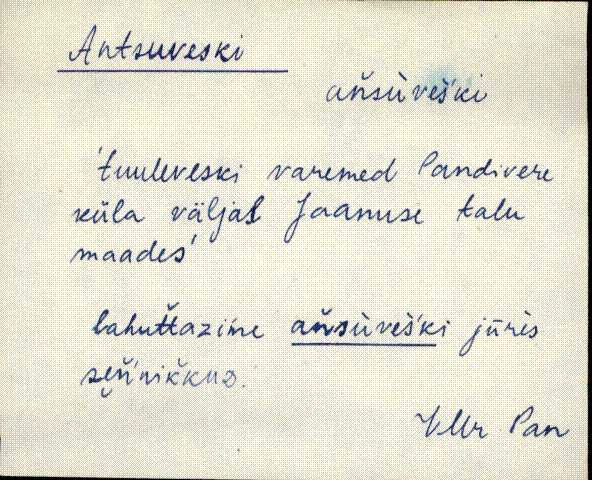 Antsuveski
aňsùveški
'tuuleveski varemed Pandivere
küla väljal Jaanuse talu
maades'
lahuťťazime aňsùveški jūrès
VMr Pan